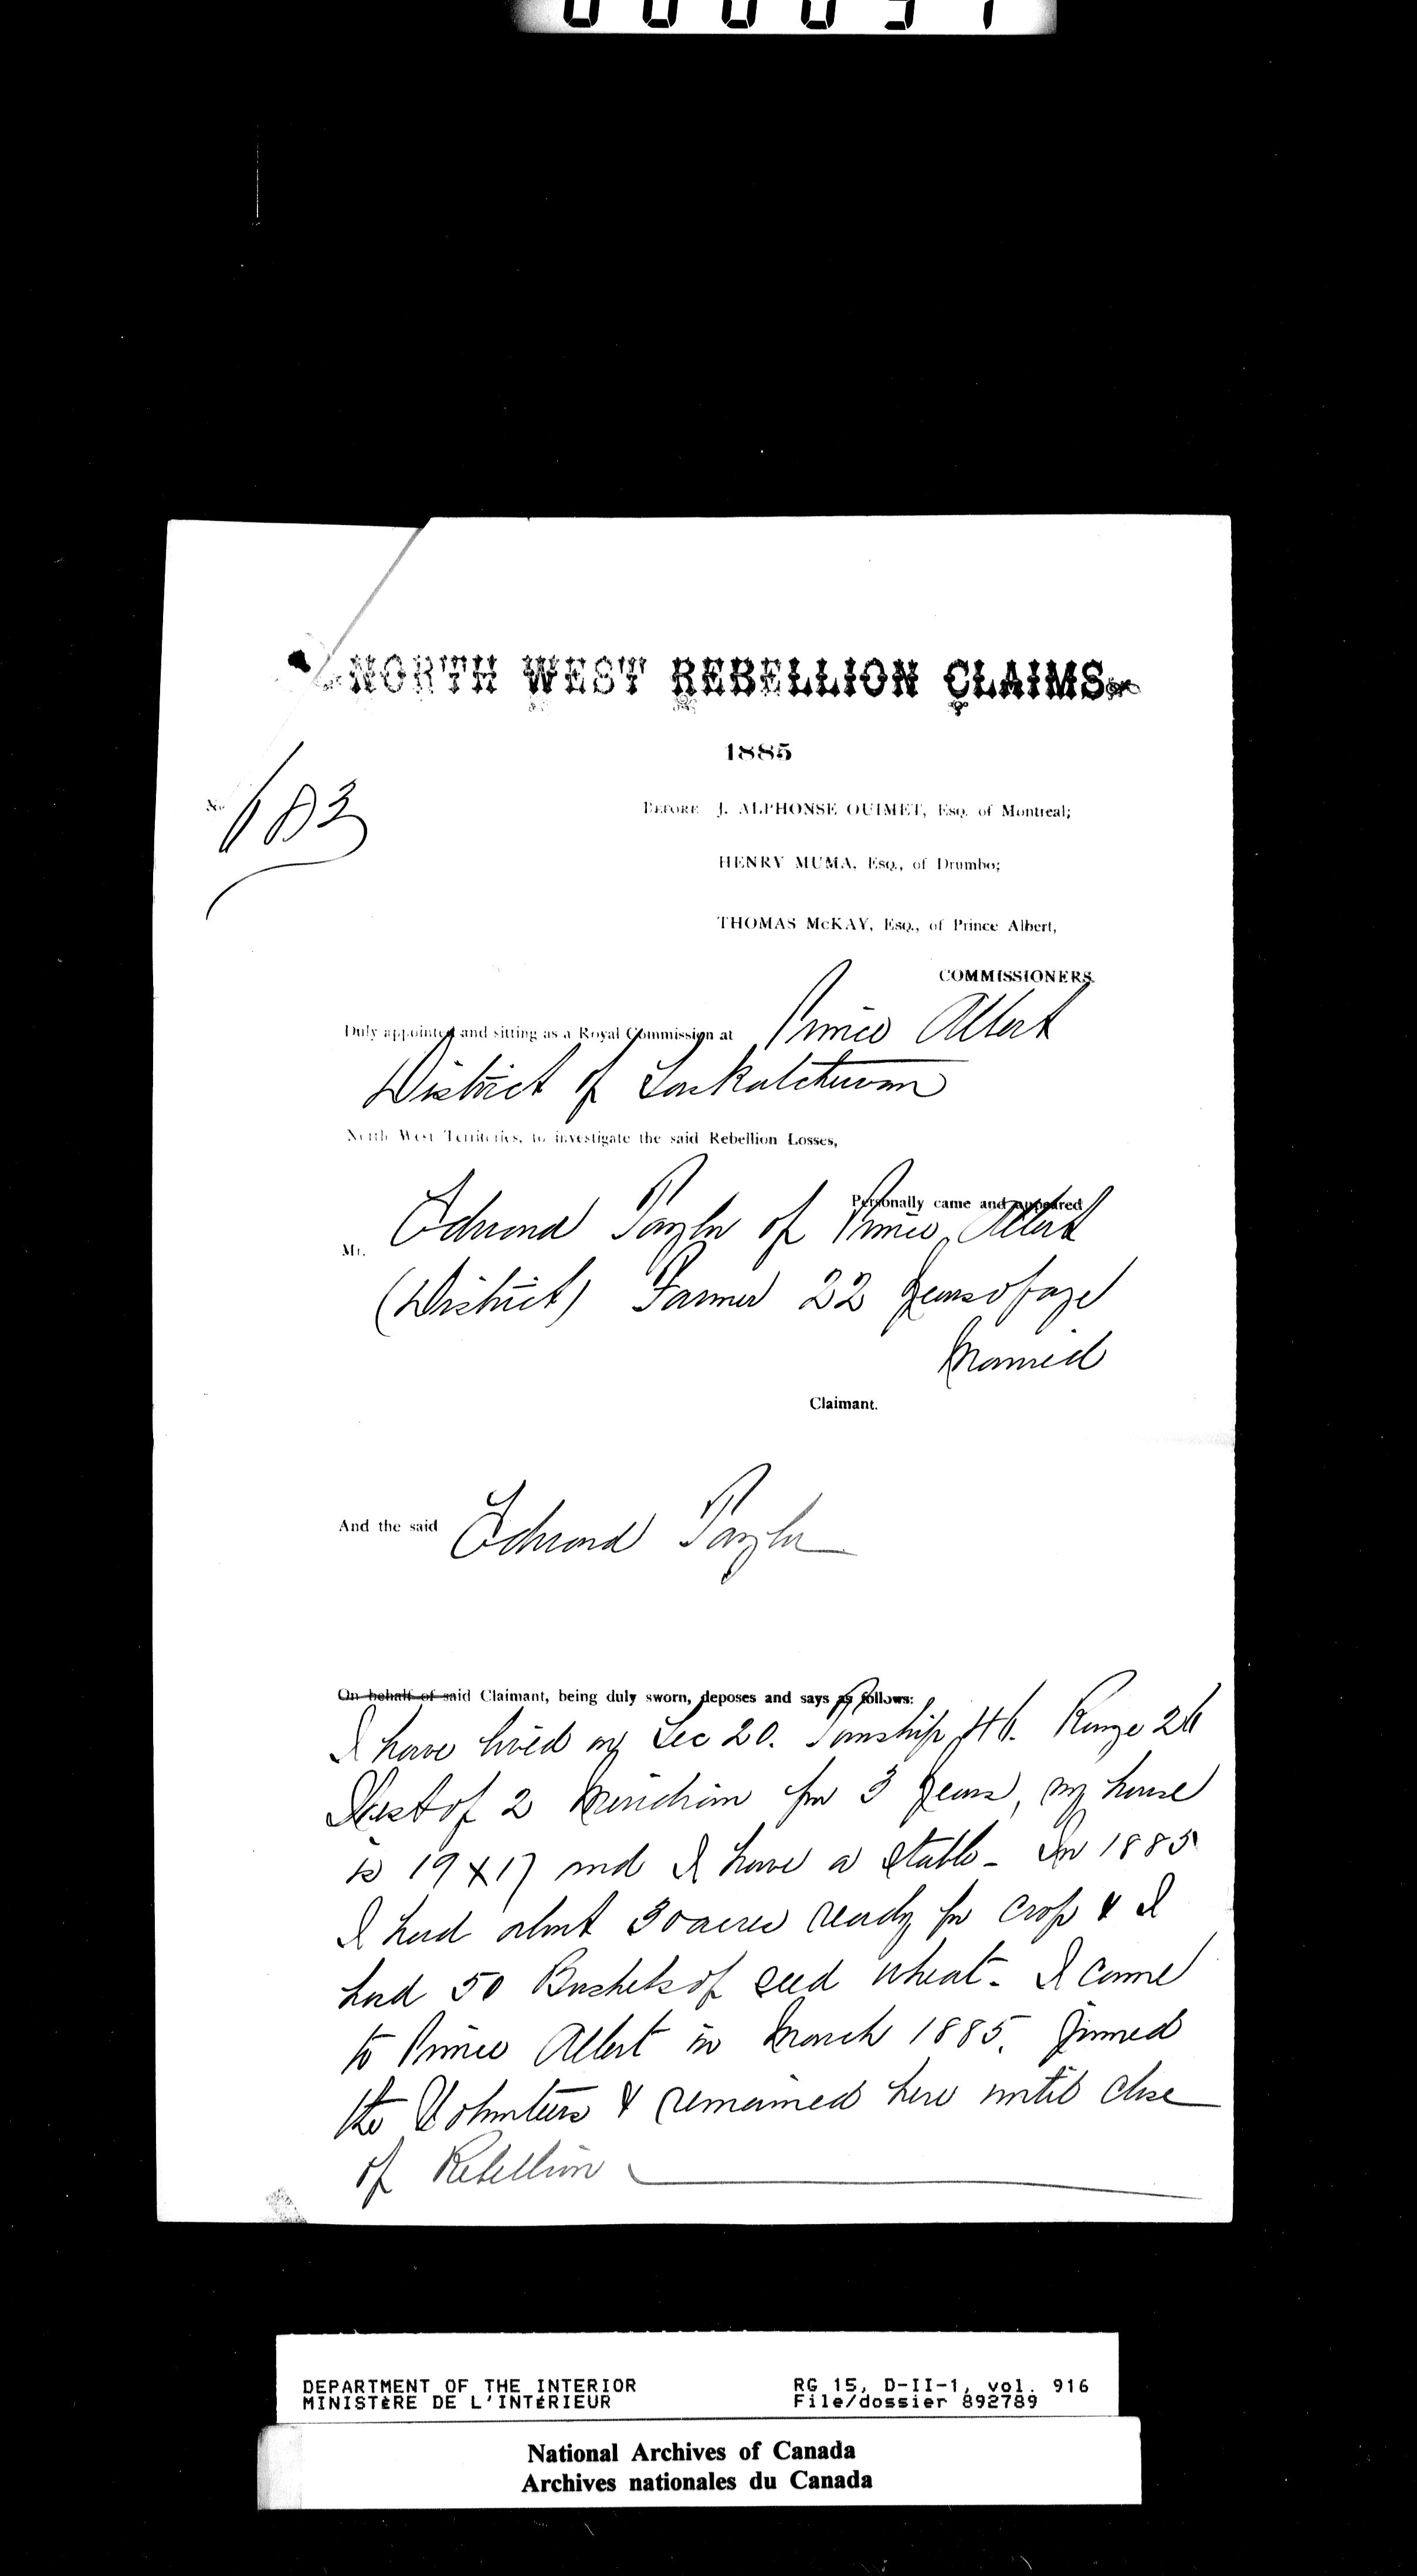 NORTH WEST REBELLION CLAIMS.
1885
No 683
BEFORE J. ALPHONSE OUIMET, Esq. of Montreal;
HENRY MUMA, Esq., of Drumbo;
THOMAS McKAY, Esq., of Prince Albert,
COMMISSIONERS.
Duly appointed and sitting as a Royal Commission at Prince Albert
District of Saskatchewan
North West Territories, to investigate the said Rebellion Losses,
Personally came and appeared
Mr. Edmond Taylor of Prince Albert
(District) Farmer 22 years of age
Married
Claimant.
And the said Edmond Taylor
On behalf of said Claimant, being duly sworn, deposes and says as follows:
I have lived on Sec 20. Township 46. Range 26
West of 2 Meridian for 3 years, my house
is 19 x 17 and I have a stable - In 1885
I had about 30 acres ready for crop & I
had 50 Bushels of seed wheat - I came
to Prince Albert in March 1885. Joined
the Volunteers & remained here until close
of Rebellion
DEPARTMENT OF THE INTERIOR RG 15, D-II-1, vol. 916
MINISTÈRE DE L'INTÉRIEUR File/dossier 892789
National Archives of Canada
Archives nationales du Canada